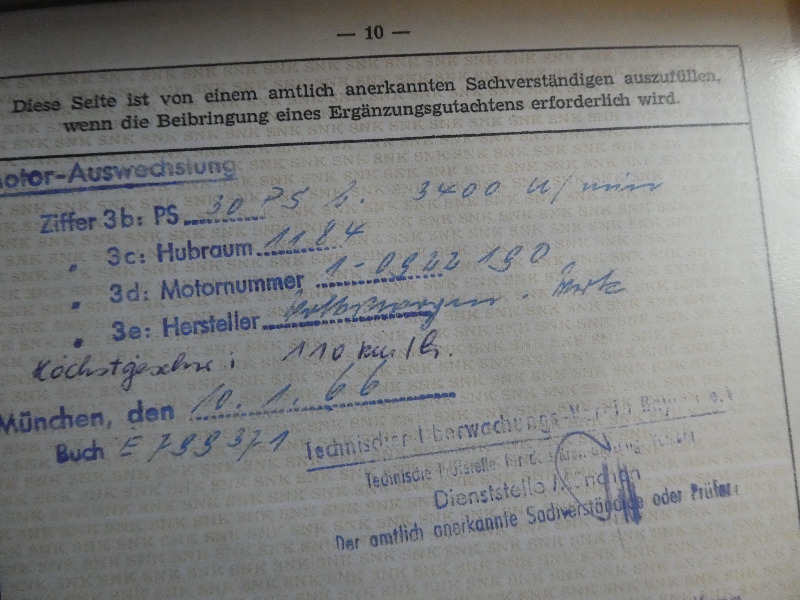 — 10 —
Diese Seite ist von einem amtlich anerkannten Sachverständigen auszufüllen,
wenn die Beibringung eines Ergänzungsgutachtens erforderlich wird.
Motor-Auswechslung
Ziffer 3b: PS 30 PS b. 3400 U/min
" 3c: Hubraum 1184
" 3d: Motornummer 1-0922190
" 3e: Hersteller Volkswagen-Werk
Höchstgeschw: 110 km/h.
München, den 10.1.66
Buch E 799371
Technischer Überwachungs-Verein Bayern e.V
Technische Prüfstelle
Dienststelle München
Der amtlich anerkannte Sachverständige oder Prüfer: